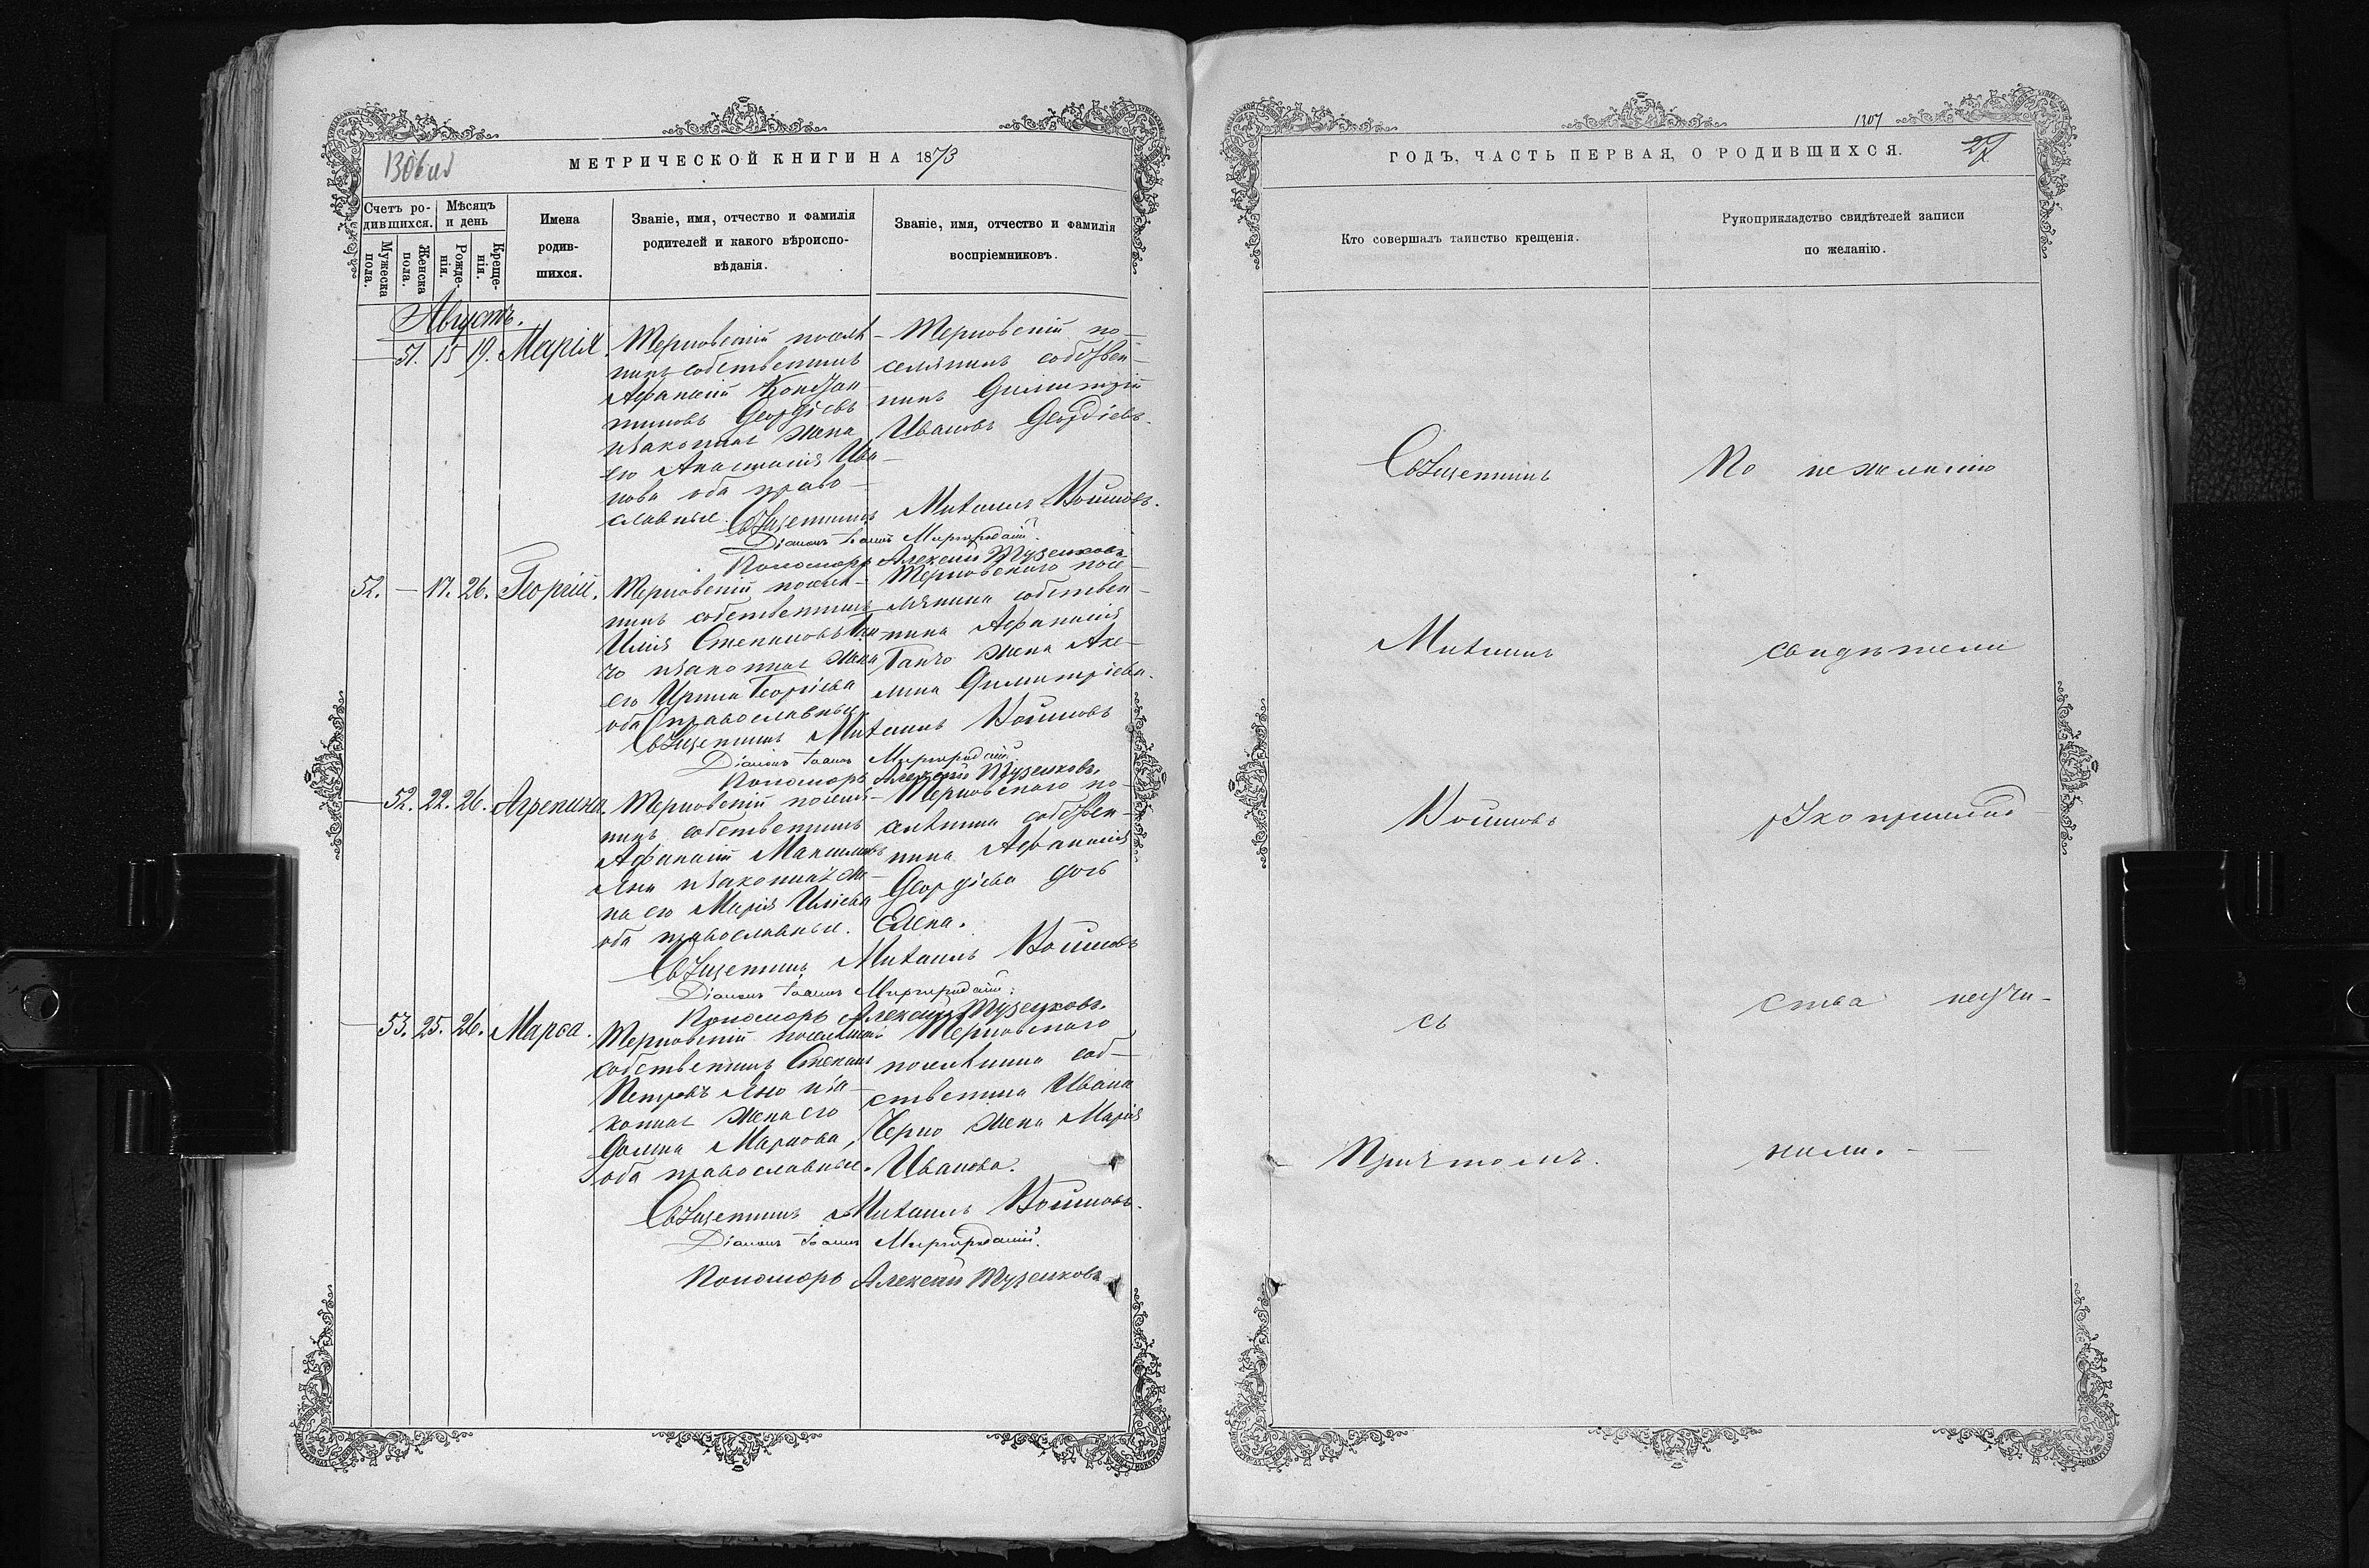 1306 об
МЕТРИЧЕСКОЙ КНИГИ НА 1873
Счетъ ро-
дившихся.
Мѣсяцъ
и день
Мужеска
пола.
Женска
пола.
Рожде-
нія.
Креще-
нія.
Имена
родив-
шихся.
Званіе, имя, отчество и фамилія
родителей и какого вѣроиспо-
вѣданія.
Званіе, имя, отчество и фамилія
воспріемниковъ.
Августъ.
— 51. 15 19. Марія.
Терновскій поселѣ-
нинъ собственникъ
Афанасій Констан
тиновъ Георгіевъ
изаконная жена
его Анастасія Ива-
нова оба право-
славные.
Терновскій по-
селянинъ собствен-
никъ Димитрій
Ивановъ Георгіевъ.
Священникъ Михаилъ Войновъ.
Діаконъ Іоаннъ Миргородскій.
Пономарь Алексѣй Тузенковъ
52. — 17. 26. Георгій.
Терновскій поселѣ-
нинъ собственникъ
Илія Степановъ Ган-
чо изаконная жена
его Ирина Георгіева
оба православные
Терновскаго посе-
лянина собствен-
ника Афанасія
Ганчо жена Аке-
лина Димитріева.
Священникъ Михаилъ Войновъ
Діаконъ Іоаннъ Миргородскій.
Пономарь Алексѣй Тузенковъ.
— 52. 22. 26. Агрепина.
Терновскій поселя-
нинъ собственникъ
Афанасій Максимовъ
Яни изаконная же-
на его Марія Иліева
оба православные.
Терновскаго по-
селѣнина собствен-
ника Афанасія
Георгіева дочь
Елена.
Священникъ Михаилъ Войновъ
Діаконъ Іоаннъ Миргородскій.
Пономарь Алексѣй Тузенковъ.
— 53. 25. 26. Марѳа.
Терновскій поселянинъ
собственникъ Степанъ
Петровъ Яню иза-
конная жена его
Домна Маркова,
оба православные.
Терновскаго
поселѣнина соб-
ственника Ивана
Черно жена Марія
Иванова.
Священникъ Михаилъ Войновъ.
Діаконъ Іоаннъ Миргородскій.
Пономарь Алексѣй Тузенковъ
1307
ГОДЪ, ЧАСТЬ ПЕРВАЯ, О РОДИВШИХСЯ.
Кто совершалъ таинство крещенія.
Рукоприкладство свидѣтелей записи
по желанію.
Священникъ
Михаилъ
Войновъ
съ
Причтомъ.
По не желанію
свидѣтели
рукоприклад
ства неучи-
нили.